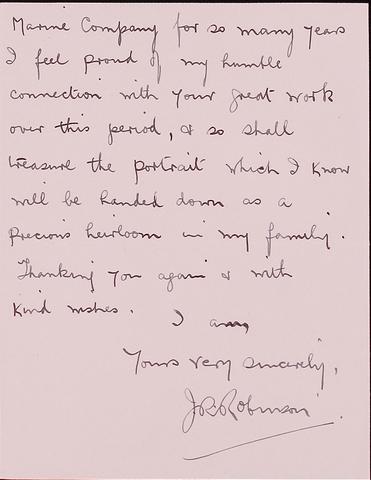 Marine Company for so many years
I feel proud of my humble
connection with your great work
over this period, & so shall
treasure the portrait which I know
will be handed down as a
precious heirloom in my family.
Thanking you again & with
kind wishes.
I am,
Yours very sincerely,
J.R. Robinson.